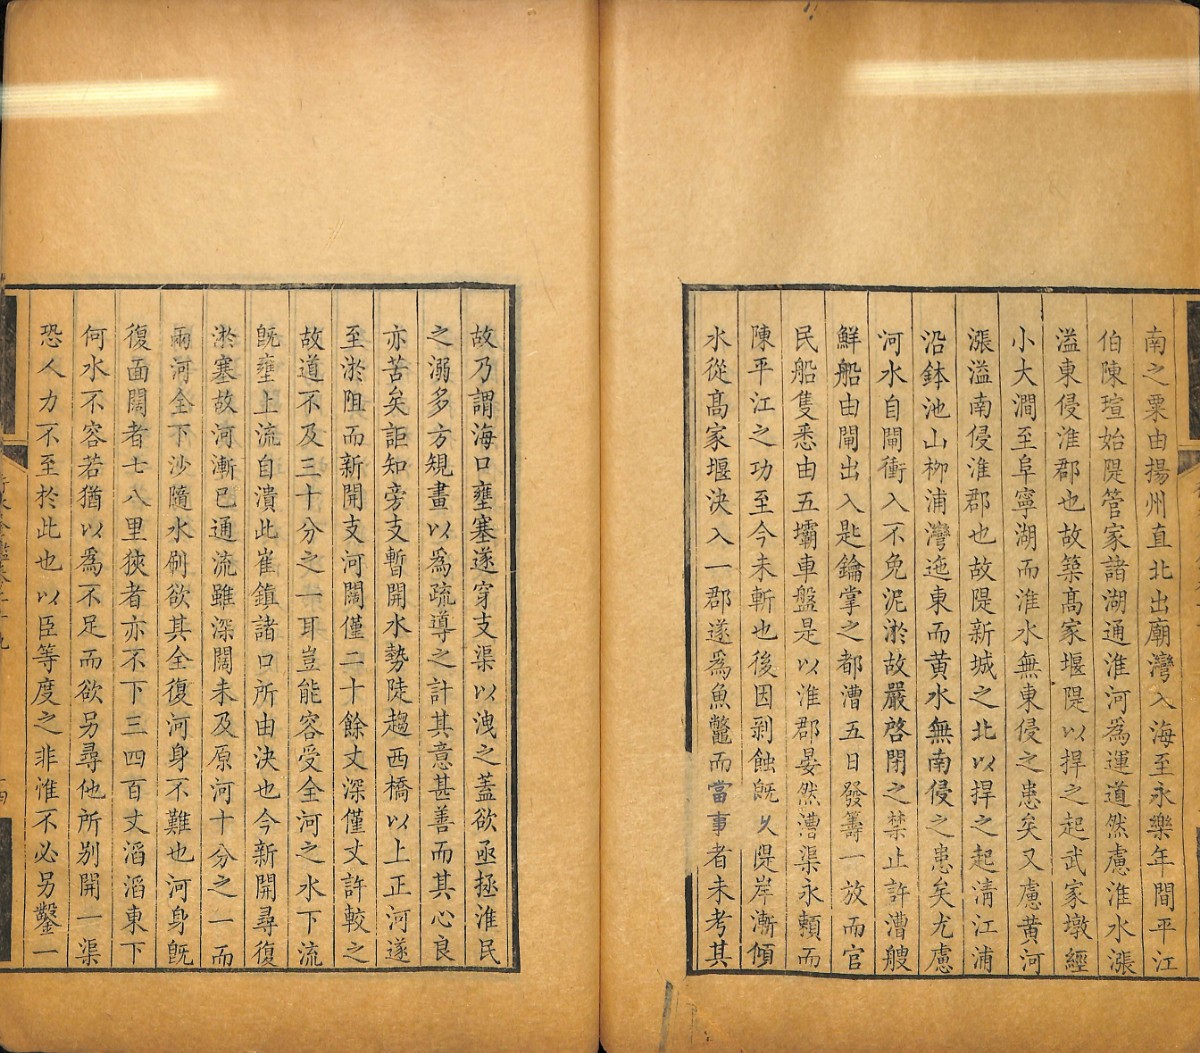 南之粟由揚州直北出廟灣入海至永樂年間平江
伯陳瑄始隄管家諸湖通淮河爲運道然慮淮水漲
溢東侵淮郡也故築高家堰隄以捍之起武家墩經
小大澗至阜寧湖而淮水無東侵之患矣又慮黄河
漲溢南侵淮郡也故隄新城之北以捍之起清江浦
沿鉢池山栁浦灣迤東而黄水無南侵之患矣尤慮
河水自閘衝入不免泥淤故嚴啓閉之禁止許漕艘
鮮船由閘出入匙鑰掌之都漕五日發籌一放而官
民船隻悉由五壩車盤是以淮郡晏然漕渠永賴而
陳平江之功至今未斬也後因剥蝕旣乆隄岸漸傾
水從高家堰決入一郡遂爲魚鼈而當事者未考其
故乃謂海口壅塞遂穿支渠以洩之蓋欲亟拯淮民
之溺多方規畫以爲疏導之計其意甚善而其心良
亦苦矣詎知旁支暫開水勢陡趨西橋以上正河遂
至淤阻而新開支河闊僅二十餘丈深僅丈許較之
故道不及三十分之一耳豈能容受全河之水下流
旣壅上流自潰此崔鎮諸口所由決也今新開尋復
淤塞故河漸已通流雖深闊未及原河十分之一而
兩河全下沙隨水刷欲其全復河身不難也河身旣
復面闊者七八里狹者亦不下三四百丈滔滔東下
何水不容若猶以爲不足而欲另尋他所别開一渠
恐人力不至於此也以臣等度之非惟不必另鑿一